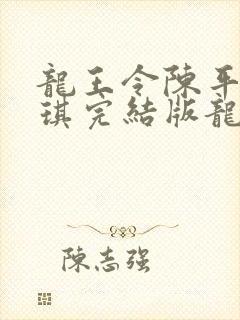 龍王令陳平
琪完結版龍
陳志強